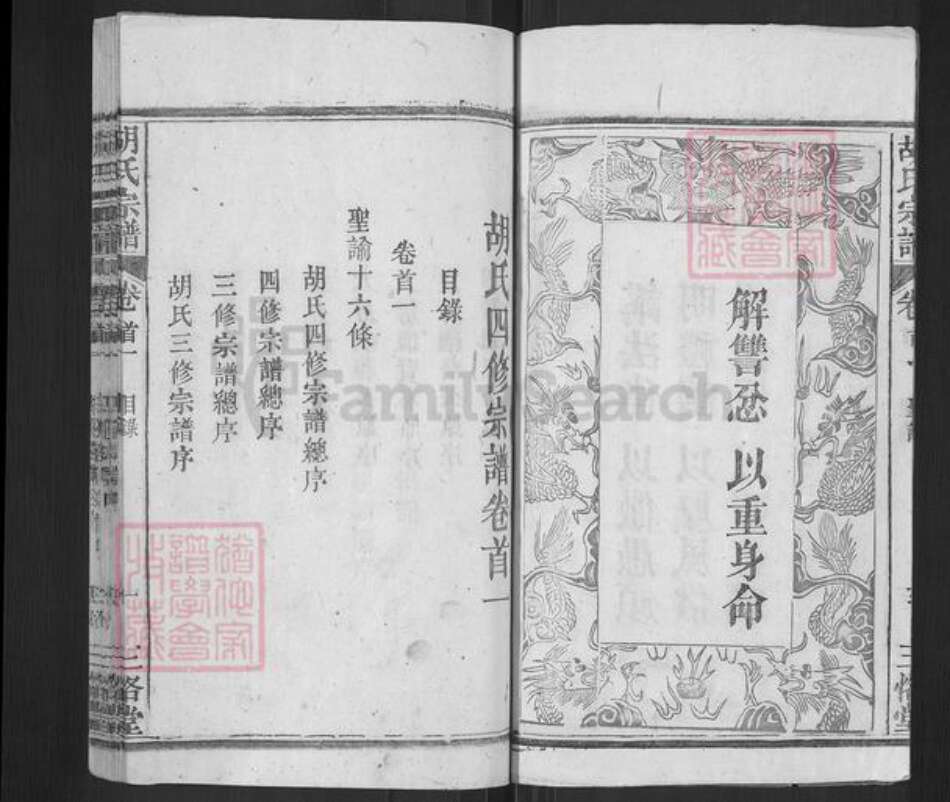 解讐忿以重身命
胡氏四修宗譜卷首一
目錄
卷首一
聖諭十六條
胡氏四修宗譜總序
四修宗譜總序
三修宗譜總序
胡氏三修宗譜序
胡氏宗譜
卷首一
目錄
三恪堂
FamilySearch